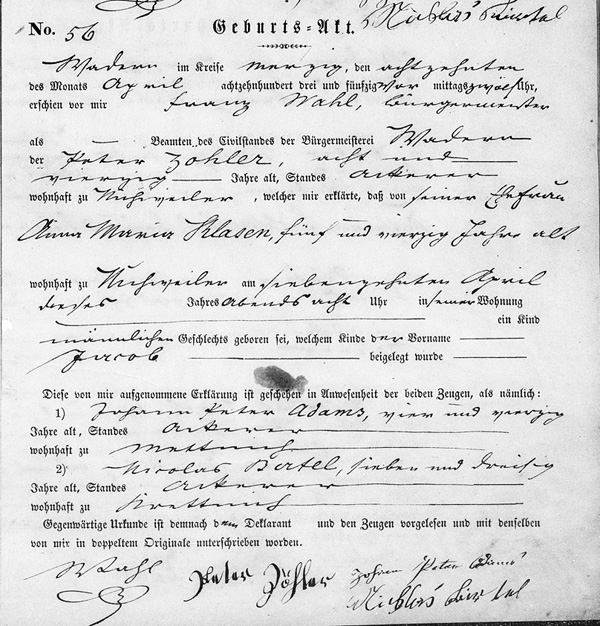 Nicklas Birtel
No. 56 Geburts-Akt.
Wadern im Kreise Merzig, den achtzehnten
des Monats April achtzehnhundert drei und fünfzig Vor mittags zwölf Uhr,
erschien vor mir Franz Wahl, Bürgermeister
als — Beamten des Civilstandes der Bürgermeisterei Wadern
der Peter Zöhler, acht und
vierzig Jahre alt, Standes Ackerer
wohnhaft zu Nuhweiler, welcher mir erklärte, daß von seiner Ehefrau
Anna Maria Klasen, fünf und vierzig Jahre alt
wohnhaft zu Nuhweiler am siebenzehnten April
dieses Jahres Abends acht Uhr in seiner Wohnung
ein Kind
männlichen Geschlechts geboren sei, welchem Kinde der Vorname
Jacob beigelegt wurde
Diese von mir aufgenommene Erklärung ist geschehen in Anwesenheit der beiden Zeugen, als nämlich:
1) Johann Peter Adams, vier und vierzig
Jahre alt, Standes Ackerer
wohnhaft zu Mettnich
2) Nicolas Birtel, sieben und dreisig
Jahre alt, Standes Ackerer
wohnhaft zu Krettnich
Gegenwärtige Urkunde ist demnach dem Deklarant und den Zeugen vorgelesen und mit denselben
von mir in doppeltem Originale unterschrieben worden.
Wahl Peter Zöhler Johann Peter Adams
Nicklas Birtel